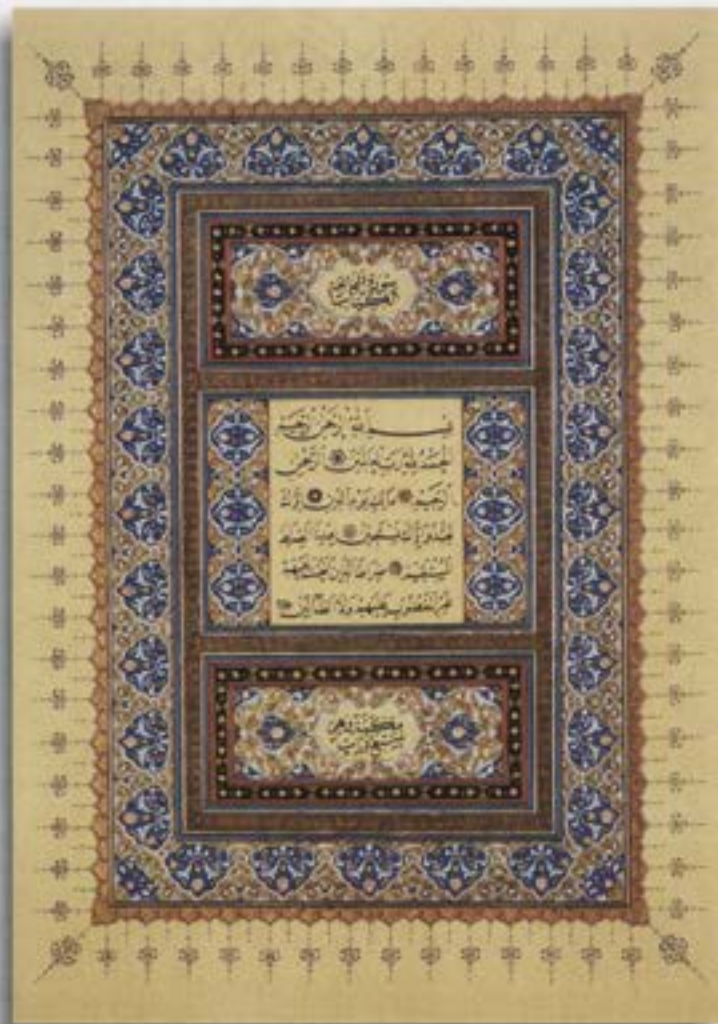 سورة الفاتحة
الكتاب
بسم الله الرحمن الرحيم
الحمد لله رب العالمين الرحمن
الرحيم مالك يوم الدين إياك
نعبد وإياك نستعين اهدنا الصراط
المستقيم صراط الذين أنعمت عليهم
غير المغضوب عليهم ولا الضالين
مكية وهي
سبع آيات